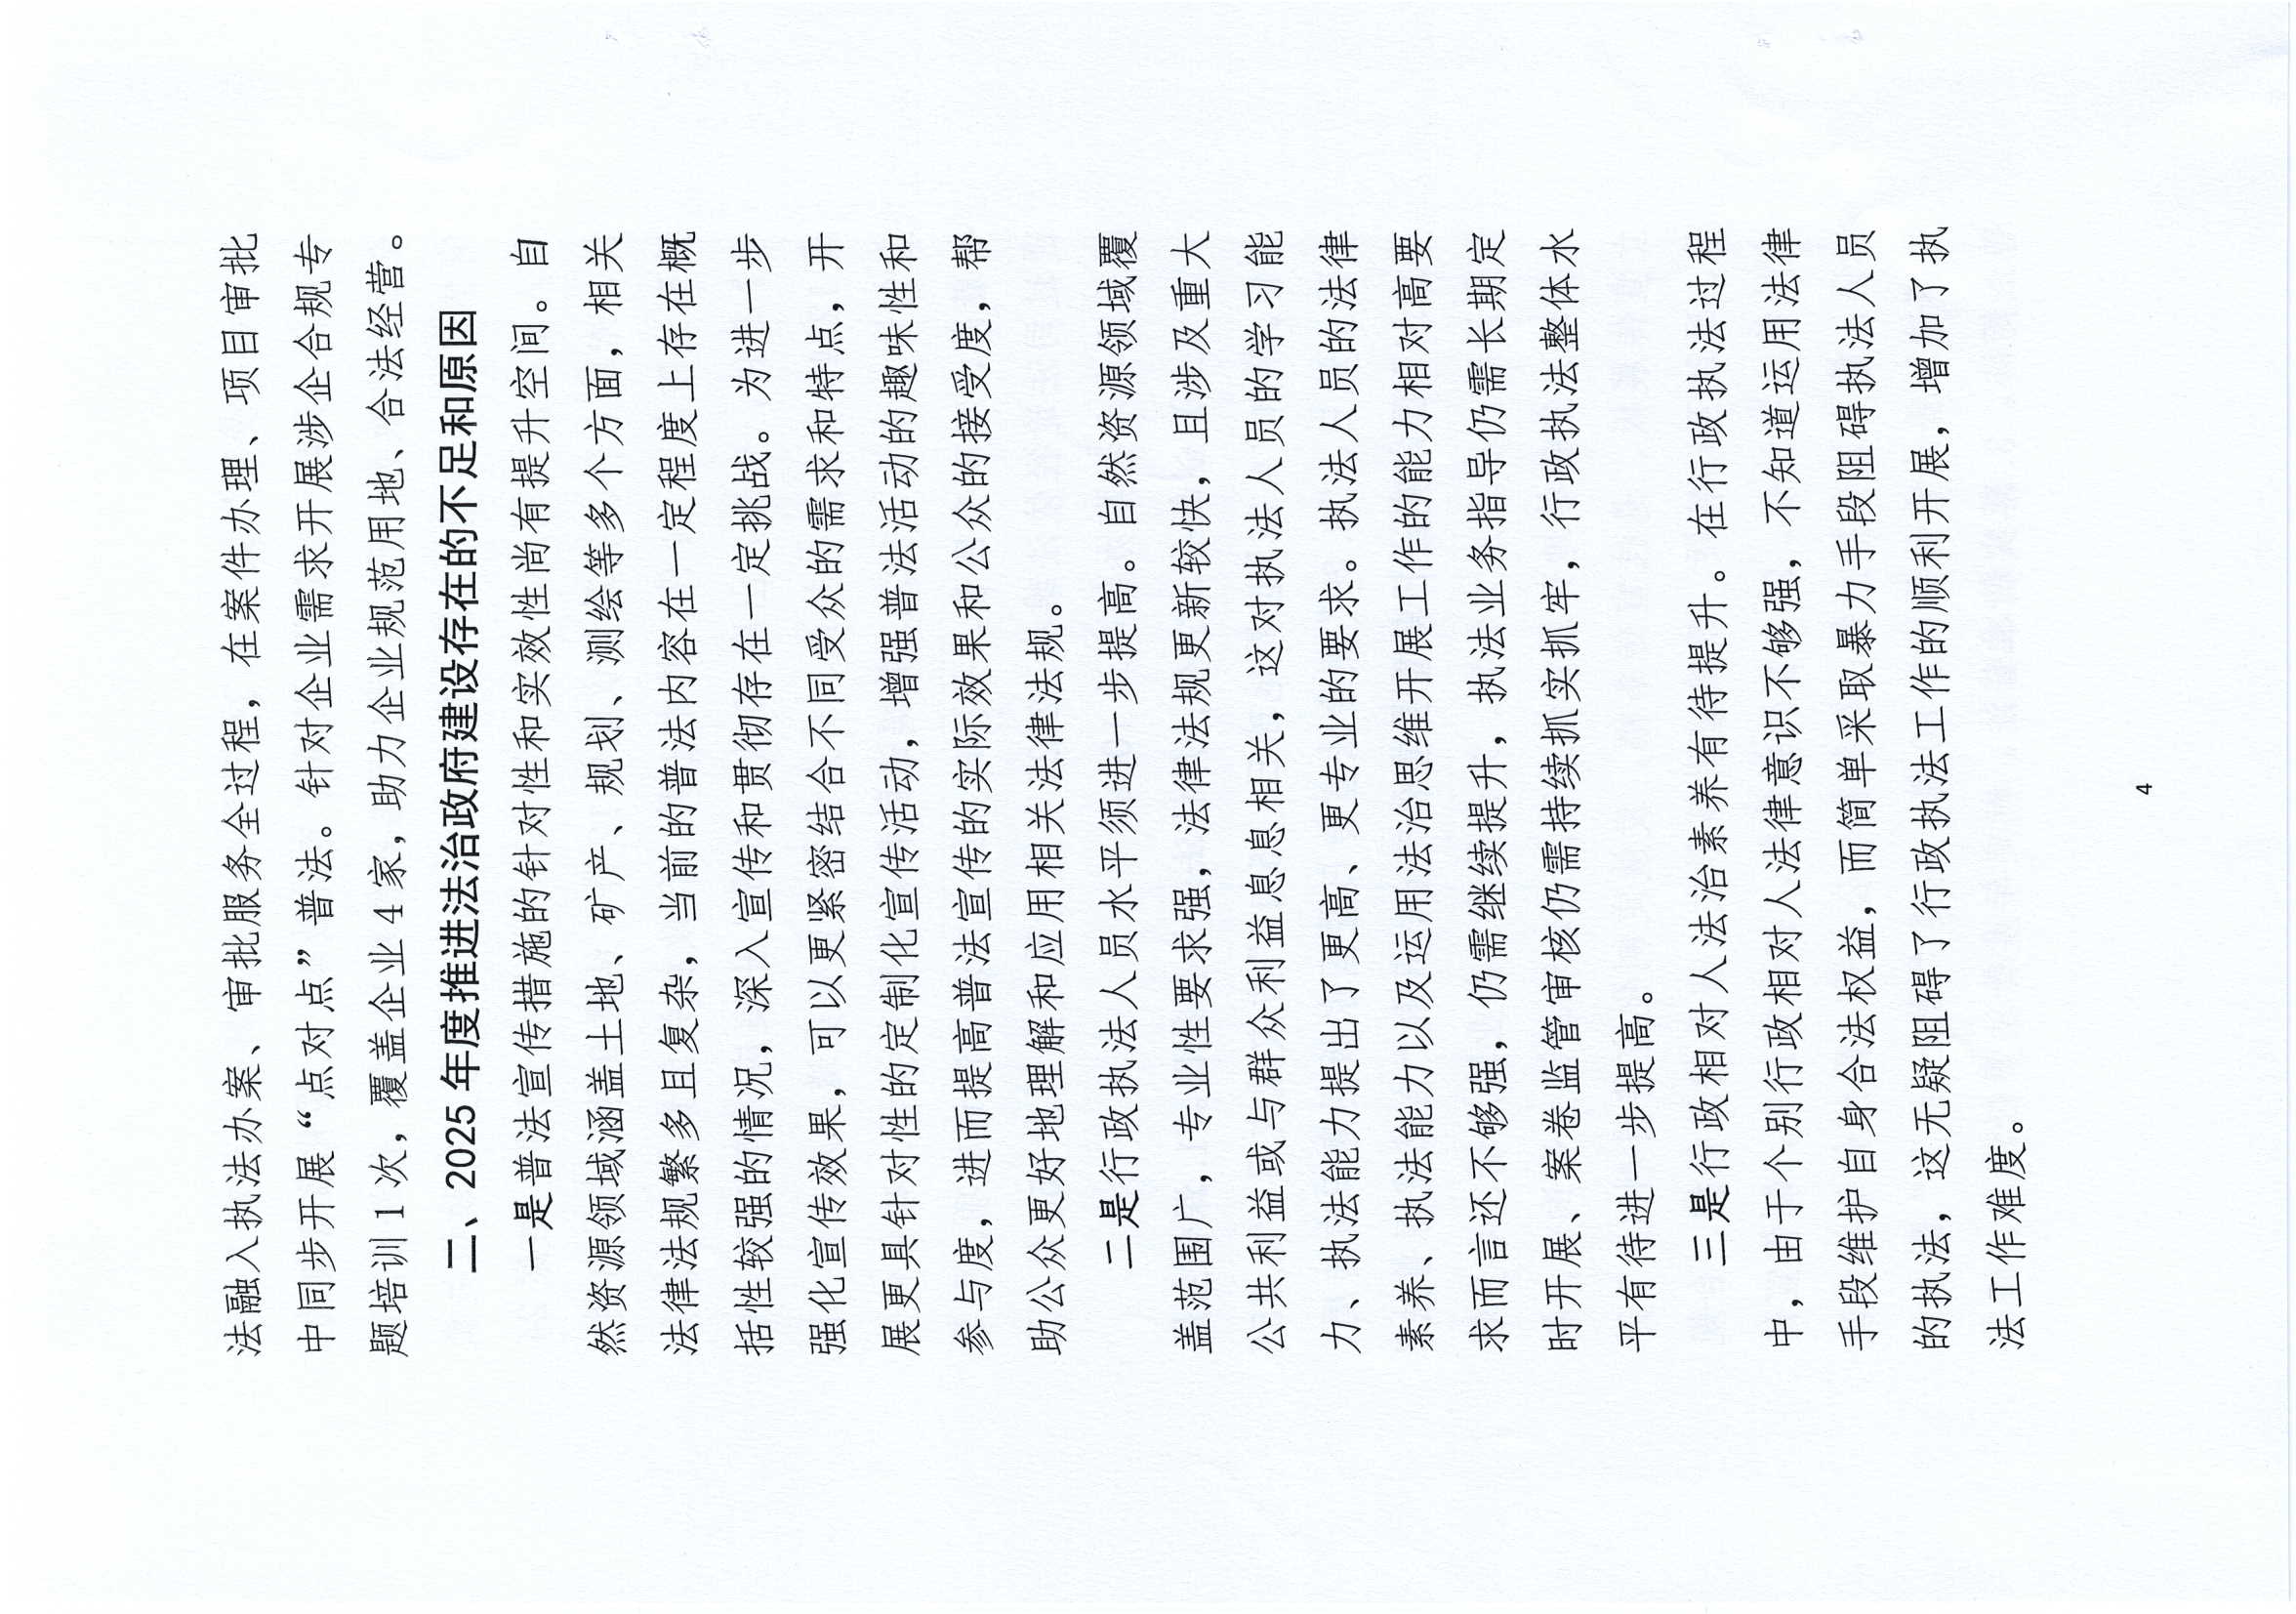 法融入执法办案、审批服务全过程，在案件办理、项目审批
中同步开展“点对点”普法。针对企业需求开展涉企合规专
题培训1次，覆盖企业4家，助力企业规范用地、合法经营。
二、2025年度推进法治政府建设存在的不足和原因
一是普法宣传措施的针对性和实效性尚有提升空间。自
然资源领域涵盖土地、矿产、规划、测绘等多个方面，相关
法律法规繁多且复杂，当前的普法内容在一定程度上存在概
括性较强的情况，深入宣传和贯彻存在一定挑战。为进一步
强化宣传效果，可以更紧密结合不同受众的需求和特点，开
展更具针对性的定制化宣传活动，增强普法活动的趣味性和
参与度，进而提高普法宣传的实际效果和公众的接受度，帮
助公众更好地理解和应用相关法律法规。
二是行政执法人员水平须进一步提高。自然资源领域覆
盖范围广，专业性要求强，法律法规更新较快，且涉及重大
公共利益或与群众利益息息相关，这对执法人员的学习能
力、执法能力提出了更高、更专业的要求。执法人员的法律
素养、执法能力以及运用法治思维开展工作的能力相对高要
求而言还不够强，仍需继续提升，执法业务指导仍需长期定
时开展、案卷监管审核仍需持续抓实抓牢，行政执法整体水
平有待进一步提高。
三是行政相对人法治素养有待提升。在行政执法过程
中，由于个别行政相对人法律意识不够强，不知道运用法律
手段维护自身合法权益，而简单采取暴力手段阻碍执法人员
的执法，这无疑阻碍了行政执法工作的顺利开展，增加了执
法工作难度。
4